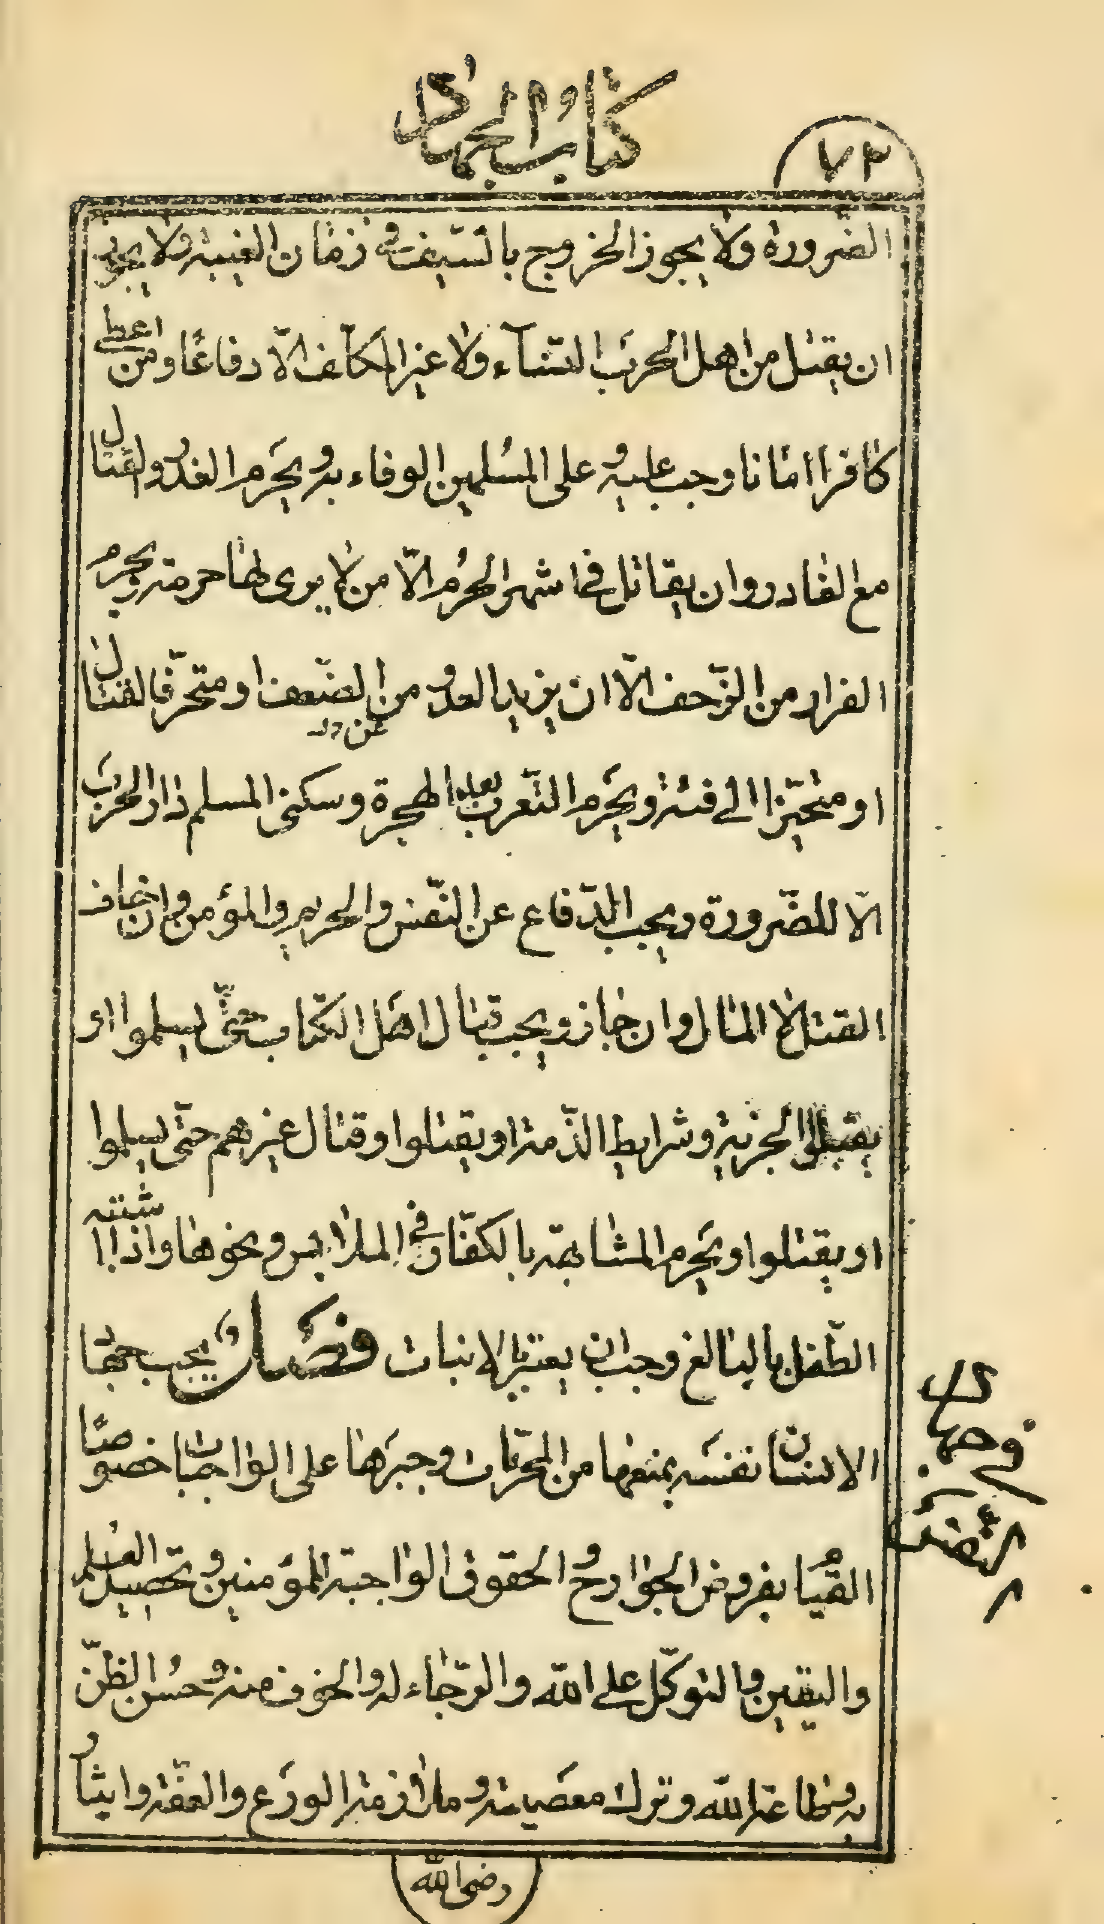 كتاب الجهاد
٧٢
الضّرورة ولا يجوز الخروج بالسّيف في زمان الغيبة ولا يجوز
ان يقتل من اهل الحرب النّساء ولا غير المكلّف الّا دفاعًا ومن اعطى
كافرا امانا وجب عليه وعلى المسلمين الوفاء به ويحرم الغدر والقتال
مع الغادر وان يقاتل في اشهر الحرم الّا من لا يرى لها حرمة ويحرم
الفرار من الزّحف الّا ان يزيد العدو عن الضّعف او متحرّفا لقتال
او متحيّزا الى فئة ويحرم التّعرب بعد الهجرة وسكنى المسلم دار الحرب
الّا للضّرورة ويجب الدّفاع عن النّفس والحريم والمؤمن وان خاف
القتل لا المال وان جاز ويجب قتال اهل الكتاب حتّى يسلموا او
يقبلوا الجزية وشرايط الذّمة او يقتلوا وقتال غيرهم حتّى يسلموا
او يقتلوا ويحرم المشابهة بالكفّار في الملابس ونحوها واذا اشتبه
الطّفل بالبالغ وجب ان يعتبر بالانبات فصل يجب جهاد
الانسان نفسه بمنعها من المحرّمات وجبرها على الواجبات خصوصًا
القيام بفروض الجوارح والحقوق الواجبة للمؤمنين وتحصيل العلم
واليقين والتوكّل على الله والرّجاء له والخوف منه وحسن الظّنّ
به وطاعة الله وترك معصيته وملازمة الورع والعفّة وايثار
في جهاد
النّفس
رضى الله